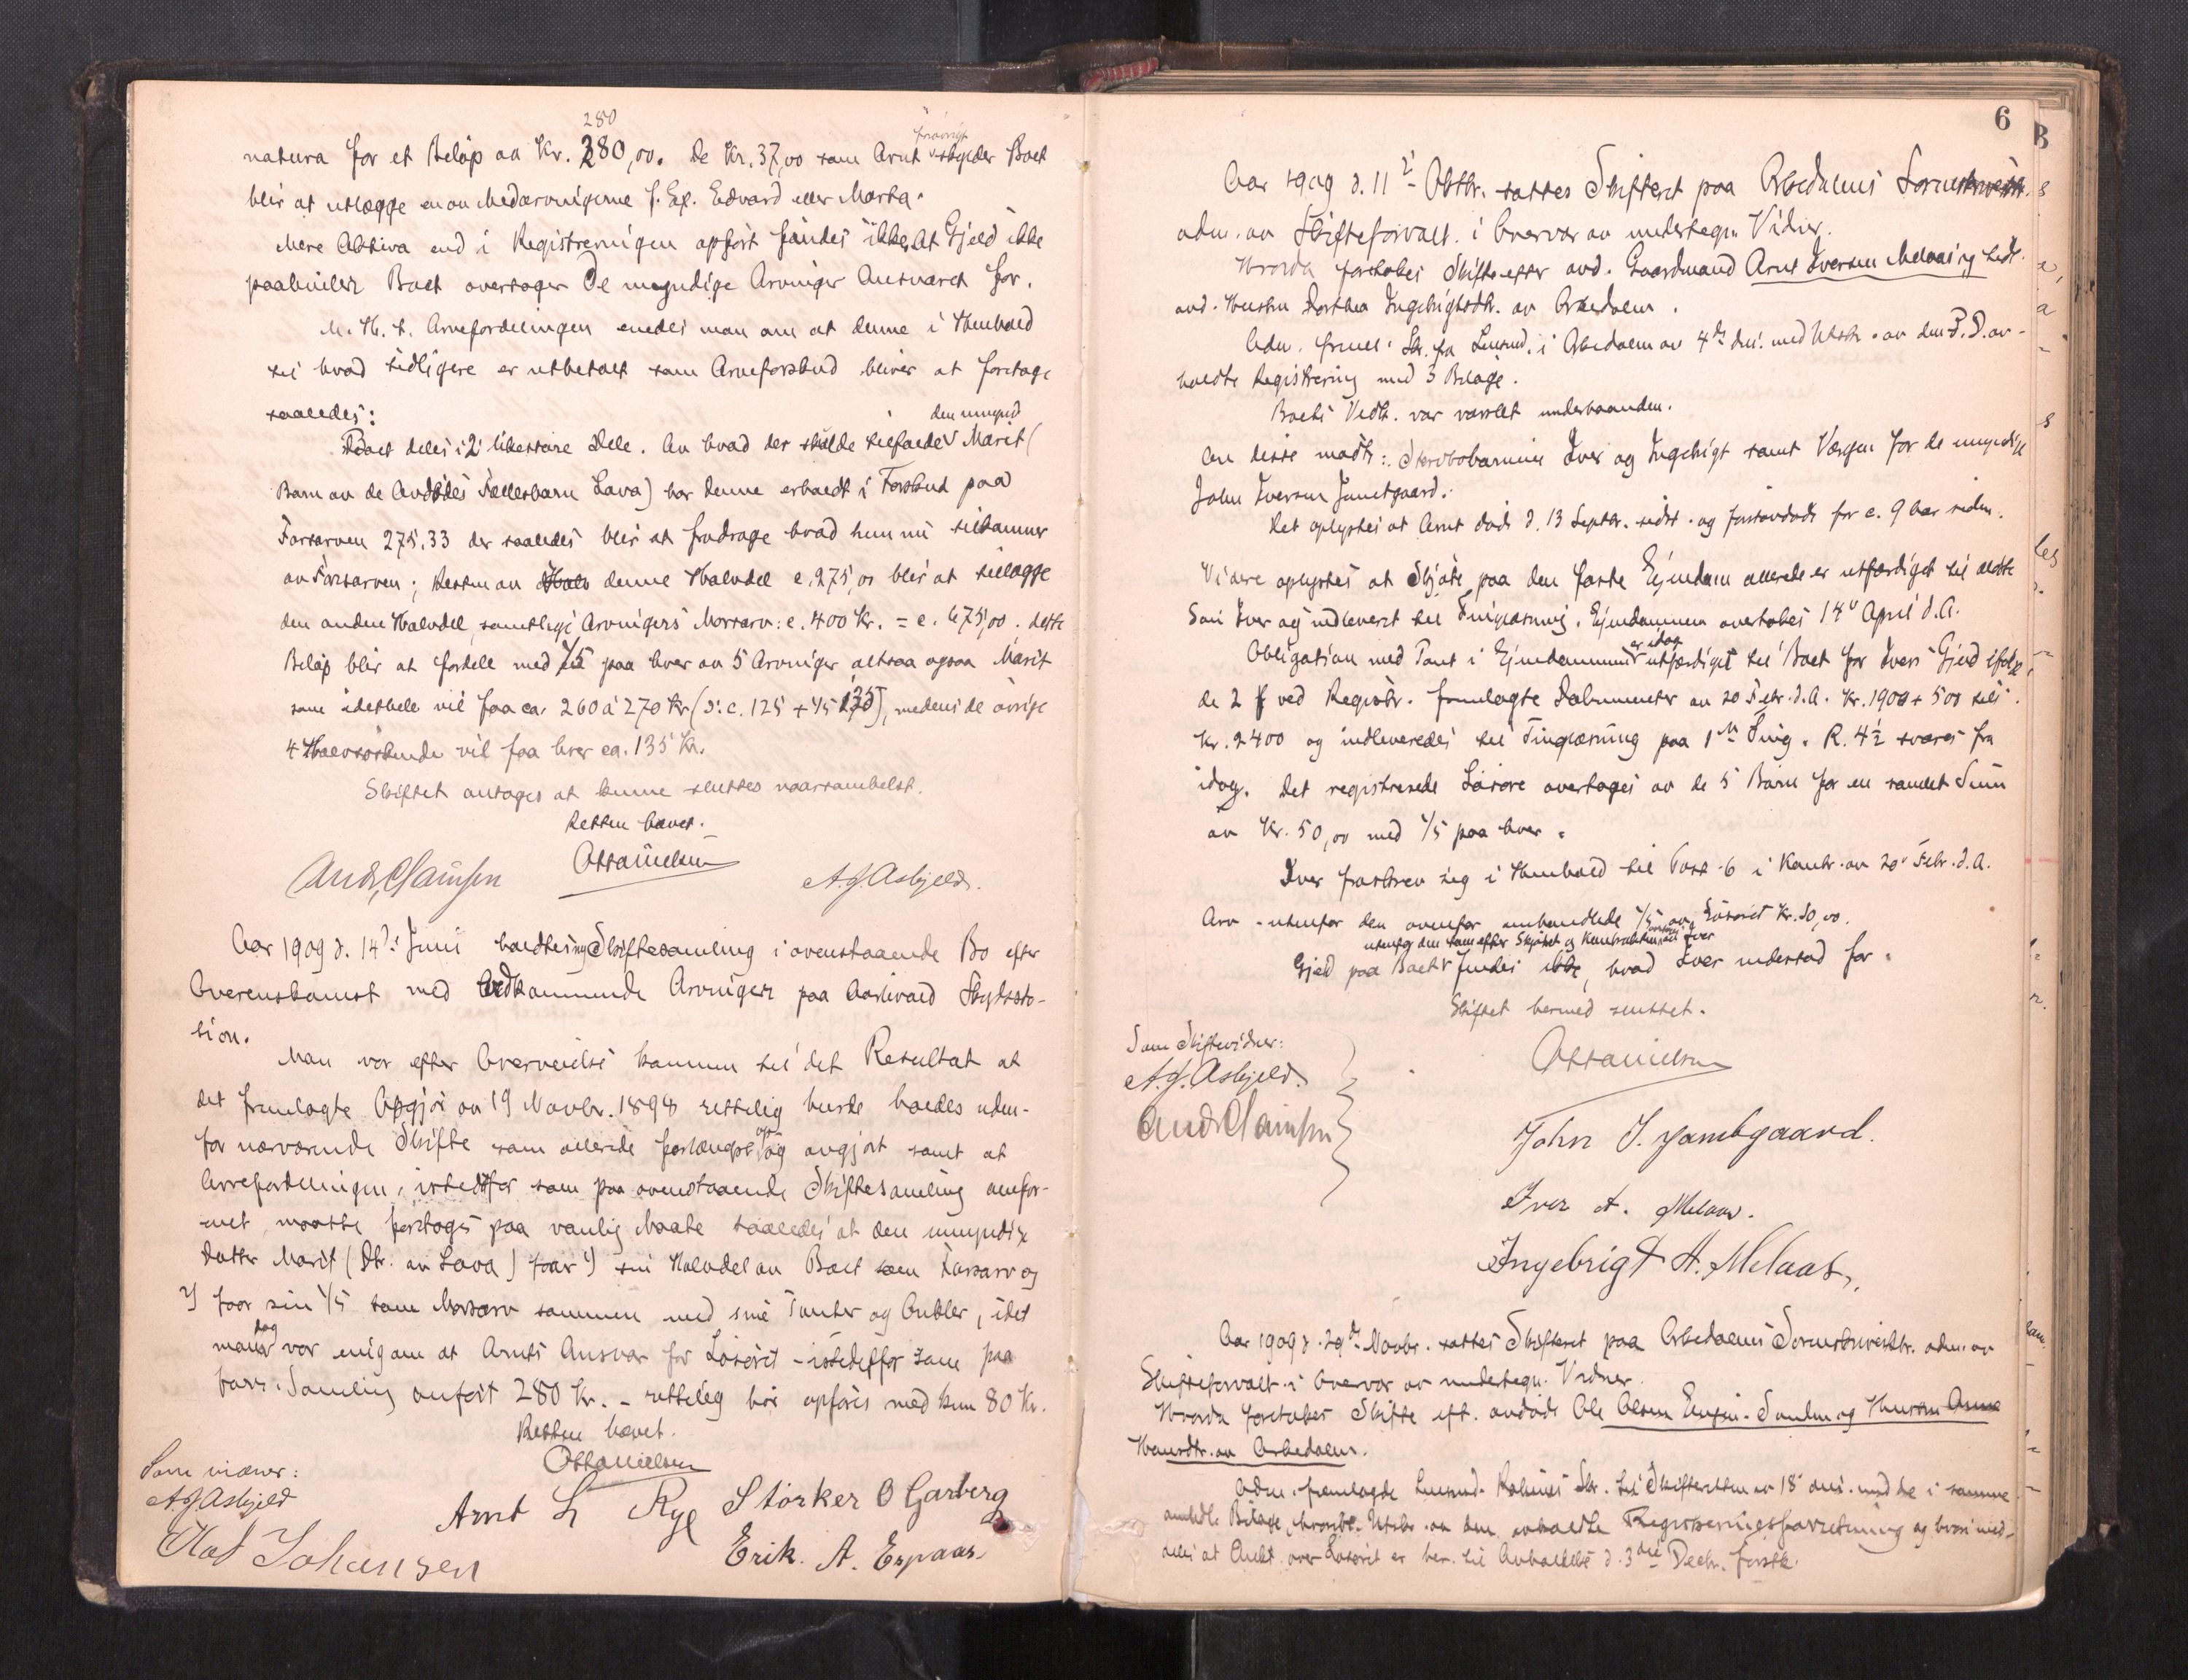 280
natura for et Beløp av Kr. 280,00. De Kr. 37,00 som Arnt forøvrigt skylder Boet
blir at utlægge en av Medarvingerne f. Ex. Edvard eller Marta.
Mere Aktiva end i Registreringen opført fandes ikke. At Gjeld ikke
paahviler Boet overtager De myndige Arvinger Ansvaret for.
M. H. t. Arvefordelingen enedes man om at denne i Henhold
til hvad tidligere er utbetalt som Arveforskud bliver at foretage
saaledes:
Boet deles i 2 likestore Dele. Av hvad der skulde tilfalde den umynd. Marit (
Barn av de Avdødes Fællesbarn Lava) har denne erholdt i Forskud paa
Farsarven 275,33 der saaledes blir at fradrage hvad hun nu tilkommer
av Farsarven; Resten av denne Halvdel c. 275,00 blir at tillægge
den anden Halvdel, samtlige Arvingers Morsarv: c. 400 Kr. = c. 675,00. dette
Beløp blir at fordele med 1/5 paa hver av 5 Arvinger altsaa ogsaa Marit
som idethele vil faa ca. 260 à 270 Kr (ɔ: c. 125 + 1/5 135), medens de øvrige
4 Halvsøskende vil faa hver ca. 135 Kr.
Skiftet antages at kunne sluttes naarsomhelst.
Retten hævet.
Otto Nielsen
Andr. Clausen A. J. Asbjeld.
Aar 1909 d. 14de Juni holdtes ny Skiftesamling i ovenstaaende Bo efter
Overenskomst med Vedkommende Arvinger paa Aarlivold Skydssta-
tion.
Man var efter Overveielse kommen til det Resultat at
det fremlagte Opgjør av 19 Novbr. 1898 rettelig burde holdes uden-
for nærværende Skifte som allerede forlængst opg og avgjort samt at
Arvefordelingen, istedetfor som paa ovenstaaende Skiftesamling omfor-
enet, maatte foretages paa vanlig Maate saaledes at den umyndige
Datter Marit (Dtr. av Lava) faar 1) sin Halvdel av Boet som Farsarv og
2) faar sin 1/5 som Morsarv sammen med sine Tanter og Onkler, idet
man dog var enig om at Arnts Ansvar for Løsøret - istedetfor som paa
forr. Samling anført 280 Kr. - rettelig bør opføres med kun 80 Kr.
Retten hævet.
Otto Nielsen
Som vidner:
A. J. Asbjeld
Olof Johansen
Arnt L Rye Størker O Garberg
Erik. A. Espaas.
6
Aar 1909 d. 11te Oktbr. sattes Skifteret paa Orkedalens Sorenskriverktr.
adm. av Skifteforvalt. i Overvær av undertegn. Vidner.
Hvorda foretoges Skifte efter avd. Gaardmand Arnt Iversen Melaas og tidl.
avd. Hustru Dorthea Ingebrigtsdtr. av Orkedalen.
Adm. freml. Skr. fra Lensmd. i Orkedalen av 4de ds. med Utskr. av den P. D. av-
holdte Registrering med 3 Bilage.
Boets Vedk. var varslet underhaanden.
Av disse mødte: Sterbobørnene Iver og Ingebrigt samt Værgen for de umyndige
John Iversen Jamtgaard.
Det oplystes at Arnt døde d. 13 Septbr. sidst. og Hustru døde for c. 9 Aar siden.
Videre oplystes at Skjøte paa den faste Eiendom allerede er utfærdiget til ældste
Søn Iver og indleveret til Tinglæsning. Eiendommen overtokes 14de April d. A.
Obligation med Pant i Eiendommen er idag utfærdiget til Boet for Ivers Gjeld ifølge
de 2 ved Registr. fremlagte Dokumenter av 20 Febr. d. A. Kr. 1900 + 500 tils.
Kr. 2400 og indleveredes til Tinglæsning paa 1ste Ting. R. 4½ svares fra
idag. Det registrerede Løsøre overtages av de 5 Børn for en samlet Sum
av Kr. 50,00 med 1/5 paa hver.
Iver fraskrev sig i Henhold til Post 6 i Kontr. av 20de Febr. d. A.
Arv - utenfor den ovenfor omhandlede 1/5 av Løsøret Kr. 50,00.
utenfor den som efter Skjøtet og Kontrakten Iver
Gjeld paa Boet findes ikke, hvad Iver indestod for.
Skiftet hermed sluttet.
Otto Nielsen
Som Skiftevidner:
A. J. Asbjeld.
Andr. Clausen
John I. Jamtgaard.
Iver A. Melaas.
Ingebrigt A. Melaas,
Aar 1909 d. 29de Novbr. sattes Skifteret paa Orkedalens Sorenskriverktr. adm. av
Skifteforvalt. i Overvær av undertegn. Vidner.
Hvorda foretokes Skifte eft. avdøde Ole Olsen og Hustru Anne
Hansdtr. av Orkedalen.
Adm. fremlagde Lensmd. Skr. til Skifteretten av 18 ds. med de i samme
anmeldte Bilage, hvorbl. Utskr. av den avholdte Registreringsforretning og hvori med-
deles at Aukt. over Løsøret er ber. til Avholdelse d. 3die Decbr. førstk.